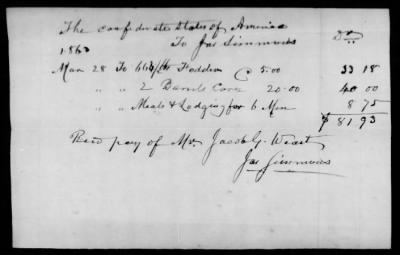 The confederate states of America
1863 To Jas Simmons Dr
Mar 28 To 663 lbs Fodder @ 5.00 33 18
" " 2 Barrels Corn 20.00 40 00
" " Meals & Lodging for 6 Men 8 75
$ 81 93
Recd pay of Mr Jacob G. West
Jas Simmons